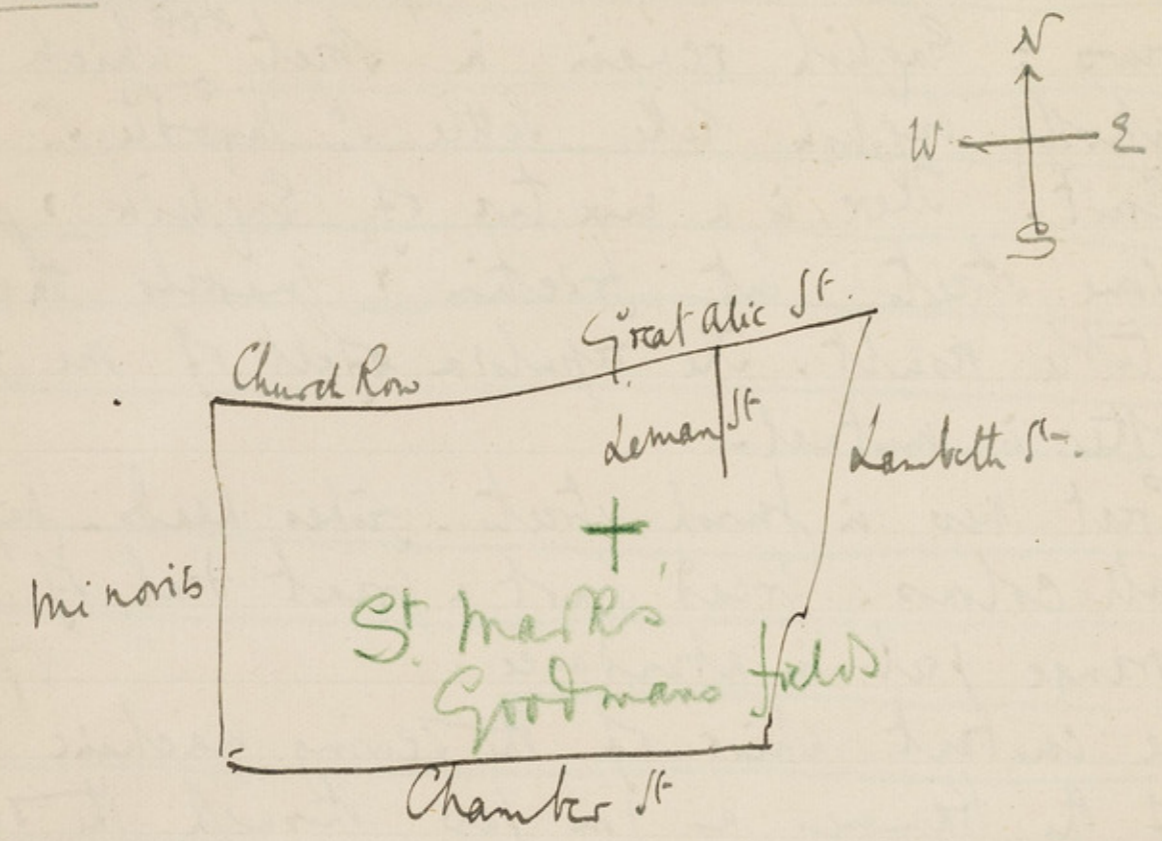 N
W E
S
Great Alic St.
Church Row
Leman St
Lambeth St.
Minoris
St. Mark's
Goodmans Fields
Chamber St